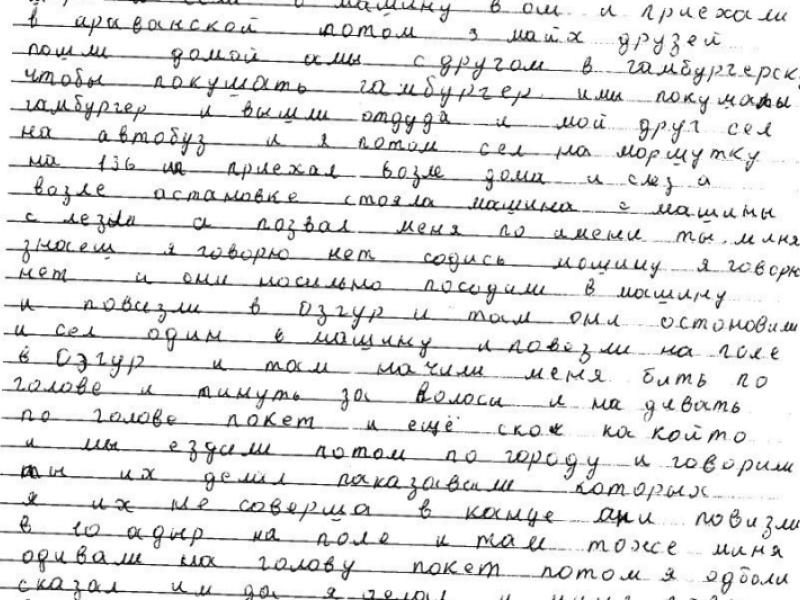 машину в ом и приехали
в араванской потом з майх друзей
пошли домой амы с другом в гамбургерск
чтобы покушать гамбургер ими покушалы
гамбургер и вышли отдуда и мой друг сел
на автобуз и я потом сел на моршутку
на 136 и приехал возле дома и слез а
возле астановке стояла машина с машины
слезли а позвал меня по имени ты миня
знаеш я говорю нет содись мошину я говорю
нет и они носильно посодили в машину
и повизли в Озгур и там они остоновили
и сел один в машину и повезли на поле
в Озгур и там начили меня бить по
голове и тинуть за волосы и на девать
по голове покет и ещё скоч на който
и мы ездили потом по городу и говорили
ты их делил паказавали которых
я их не соверша в канце ани повизли
в 10 адыр на поле и там тоже миня
одивали на голову покет потом я одболи
сказал им да я делал и